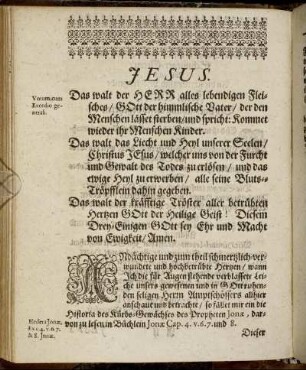 JESUS.
Das walt der HERR alles lebendigen Flei-
sches/ GOtt der himmlische Vater/ der den
Menschen lässet sterben/und spricht: Kommet
wieder ihr Menschen Kinder.
Das walt das Liecht und Heyl unserer Seelen/
Christus JEsus/ welcher uns von der Furcht
und Gewalt des Todes zu erlösen/ und das
ewige Heyl zu erwerben/ alle seine Bluts-
Tröpfflein dahin gegeben.
Das walt der kräfftige Tröster aller betrübten
Hertzen GOtt der Heilige Geist! Diesem
Drey-Einigen GOtt sey Ehr und Macht
von Ewigkeit/ Amen.
Andächtige und zum theil schmertzlich-ver-
wundete und hochbetrübte Hertzen/ wann
Ich die für Augen stehende verblassete Lei-
che unsers gewesenen und in GOtt ruhen-
den seligen Herrn Amptschössers allhier
anschaue und betrachte/ so fället mir ein die
Historia des Kürbs-Gewächses des Propheten Jona, dar-
von zu lesen in Büchlein Jonæ Cap. 4. v. 6. 7. und 8.
Dieser
Votum
Exordio ge-
nerali.
Hedera Jonæ,
ex c. 4. v. 6. 7.
& 8. Jonæ.